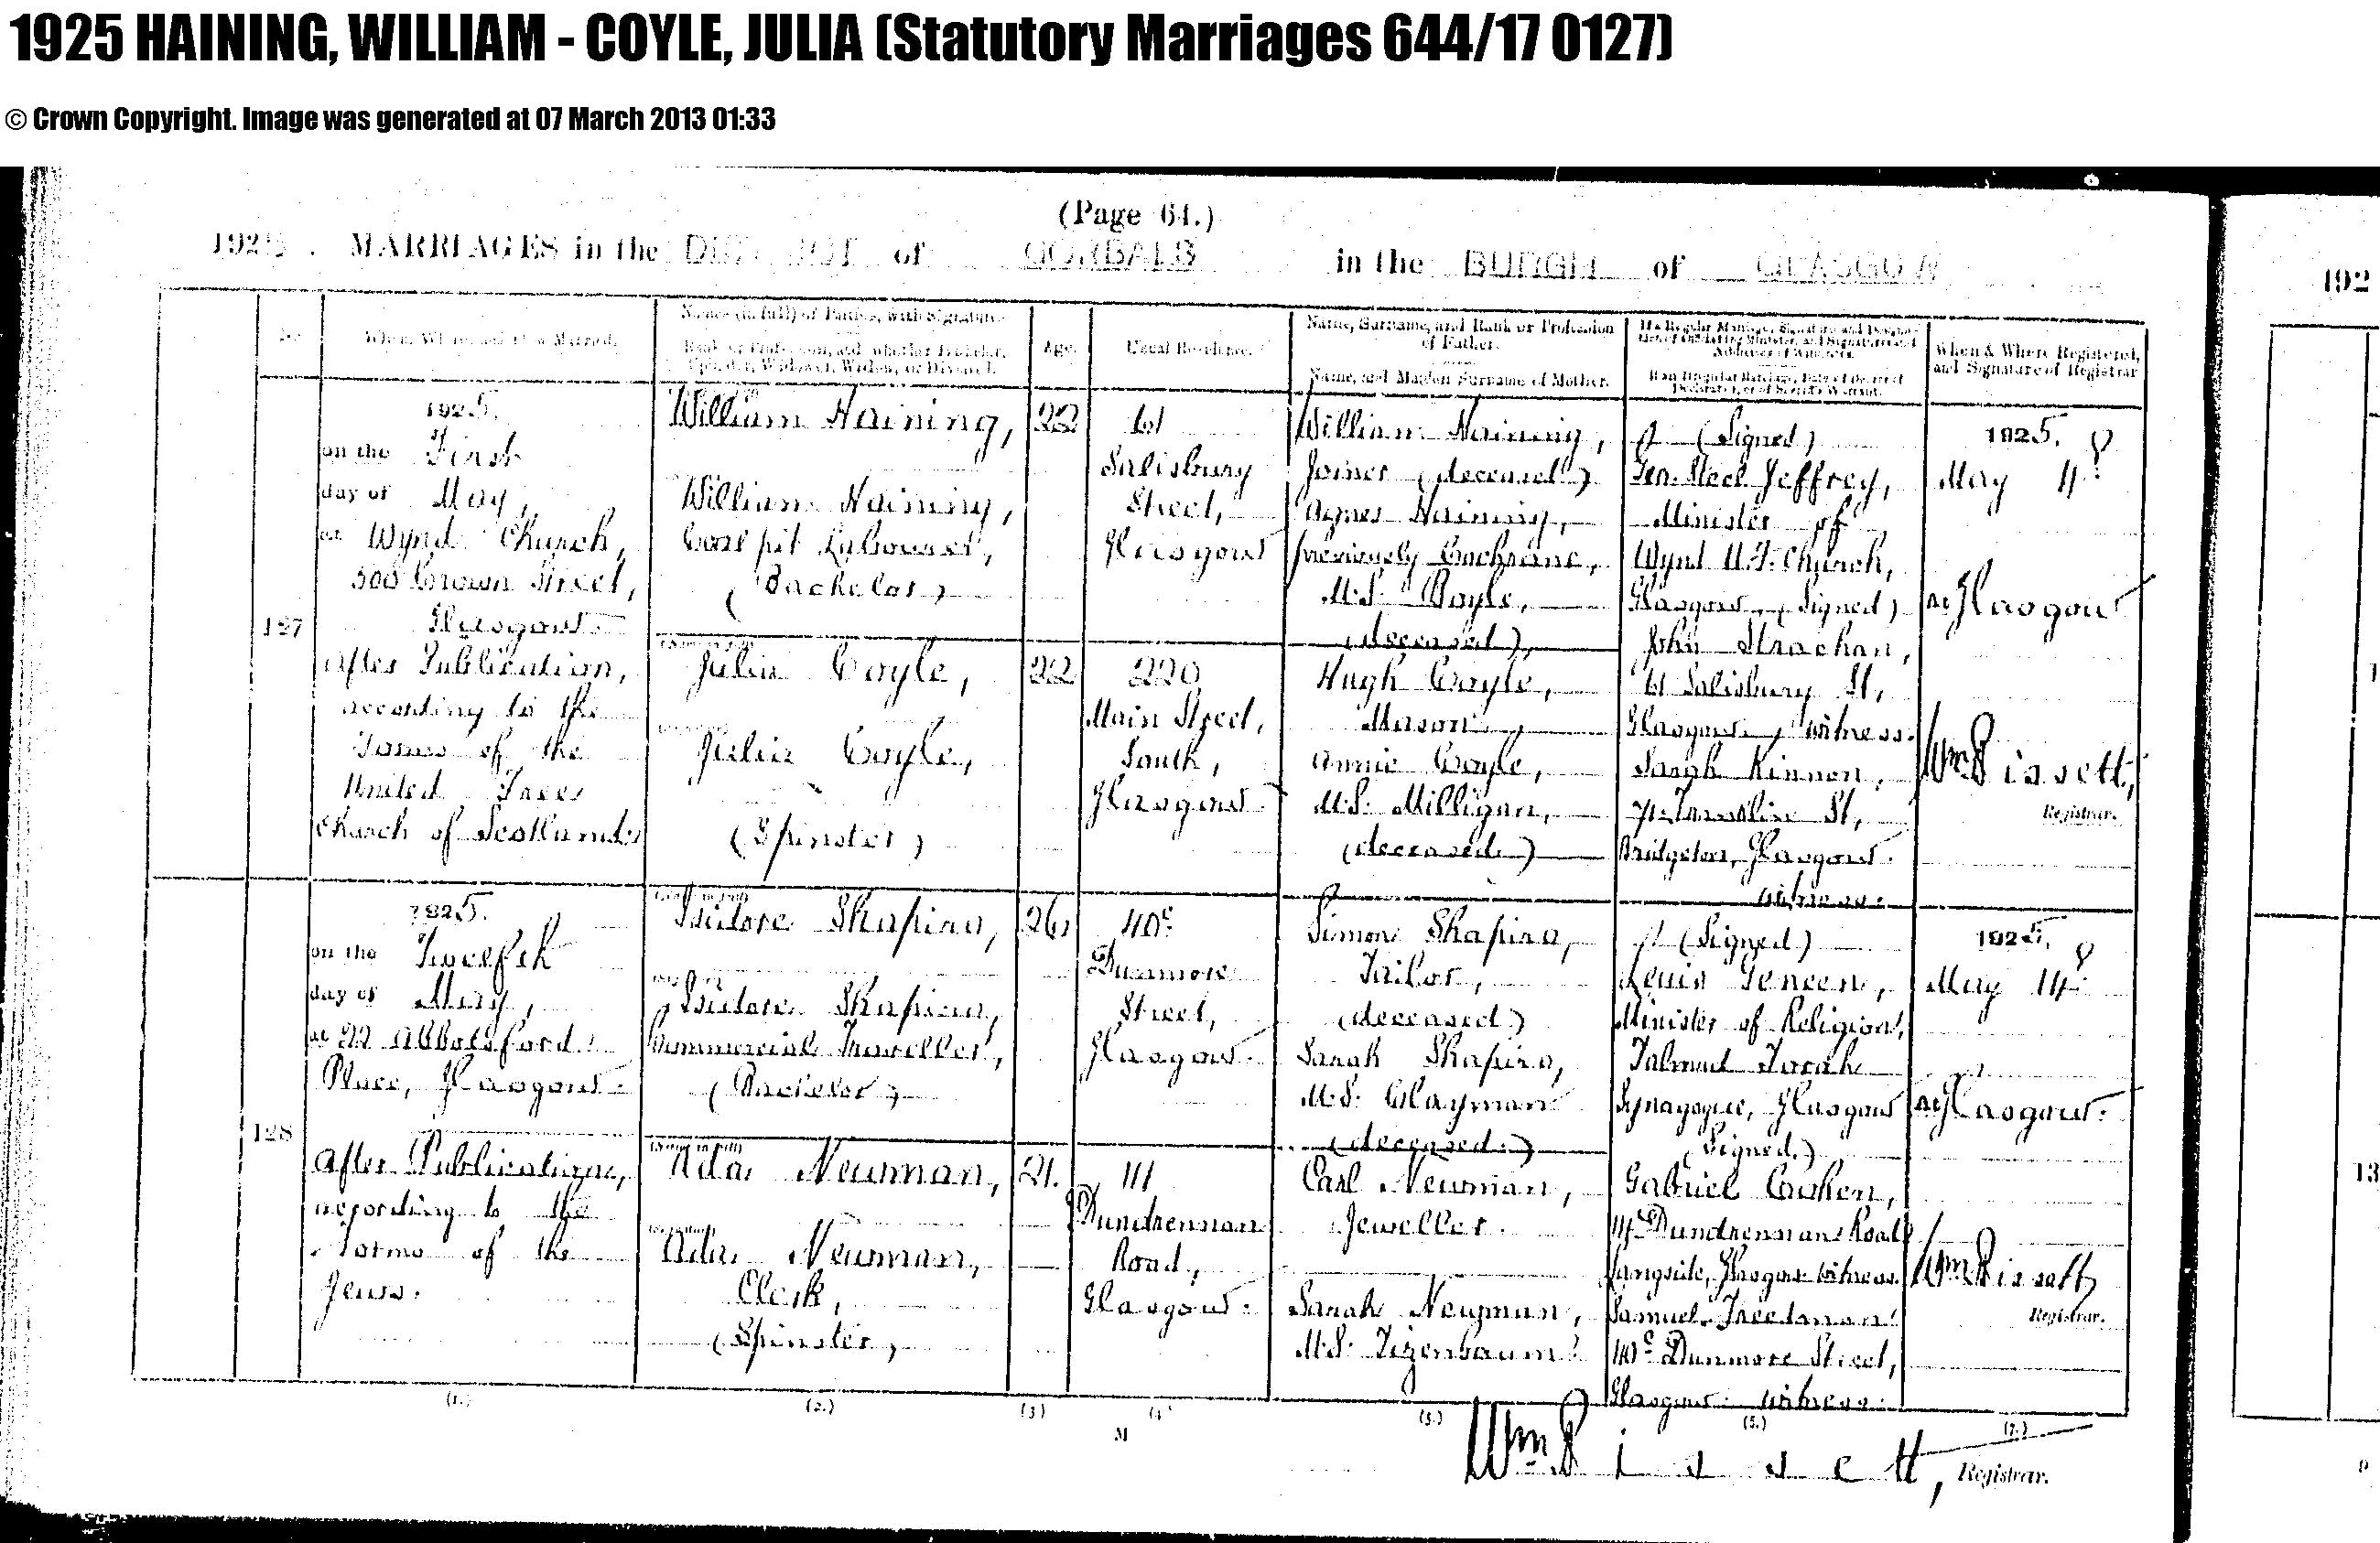 1925 HAINING, WILLIAM - COYLE, JULIA (Statutory Marriages 644/17 0127)
© Crown Copyright. Image was generated at 07 March 2013 01:33
(Page 64.)
1925. MARRIAGES in the DISTRICT of GORBALS in the BURGH of GLASGOW
192
No.
When, Where, and How Married.
Names (in full) of Parties, with Signatures.
Rank or Profession, and whether Bachelor,
Spinster, Widower, Widow, or Divorced.
Age.
Usual Residence.
Name, Surname, and Rank or Profession
of Father.
Name, and Maiden Surname of Mother.
If a Regular Marriage, Signature and Designation
of Officiating Minister, and Signatures and
Addresses of Witnesses.
If an Irregular Marriage, Date of Decree of
Declarator, or of Sheriff's Warrant.
When & Where Registered,
and Signature of Registrar
127
1925.
on the First
day of May,
at Wynd Church,
500 Crown Street,
Glasgow.
After Publication,
according to the
Forms of the
United Free
Church of Scotland.
William Haining,
William Haining,
Coal pit Labourer,
(Bachelor)
22
61
Salisbury
Street,
Glasgow
William Haining,
Joiner (deceased)
Agnes Haining,
previously Cochrane,
M.S. Boyle,
(deceased),
Julia Coyle,
Julia Coyle,
(Spinster)
22
220
Main Street,
South,
Glasgow.
Hugh Coyle,
Mason,
Annie Coyle,
M.S. Milligan,
(deceased)
(Signed)
Geo. Steel Jeffrey,
Minister of
Wynd U.F. Church,
Glasgow, (Signed)
John Strachan,
61 Salisbury St,
Glasgow, witness.
Sarah Kinnon,
St,
Bridgeton, Glasgow.
witness.
1925.
May 4th
At Glasgow
Wm Bissett,
Registrar.
128
1925.
on the Twelfth
day of May,
at 22 Abbotsford
Place, Glasgow.
After Publication,
according to the
Forms of the
Jews.
Isidore Shapiro,
Isidore Shapiro,
Commercial Traveller,
(Bachelor)
26
40c
Dunmore
Street,
Glasgow.
Simon Shapiro,
Tailor,
(deceased)
Sarah Shapiro,
M.S. Clayman
(deceased.)
Ada Neuman,
Ada Neuman,
Clerk,
(Spinster)
21.
111
Dundrennan
Road,
Glasgow.
Carl Neuman,
Jeweller.
Sarah Neuman,
M.S. Tizenbaum
(Signed)
Lewis Geneen,
Minister of Religion,
Talmud Torah
Synagogue, Glasgow
(Signed.)
Gabriel Cohen,
Dundrennan Road
Langside, Glasgow witness.
Samuel Freedman
40c Dunmore Street,
Glasgow. witness.
1925.
May 14th
At Glasgow.
Wm Bissett
Registrar.
13
(1.) (2.) (3) (4) (5.) (5.) (7.)
M
Wm Bissett, Registrar.